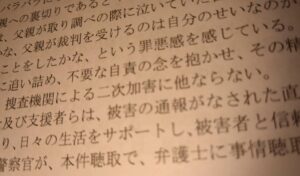 親への裏切りであると
、父親が取り調べの際に泣いていた
な、父親が裁判を受けるのは自分のせいなのか
ことをしたかな、という罪悪感を感じている。
に追い詰め、不要な自責の念を抱かせ、その精
捜査機関による二次加害に他ならない。
及び支援者らは、被害の通報がなされた直
り、日々の生活をサポートし、被害者と信頼
警察官が、本件聴取で、弁護士に事情聴取